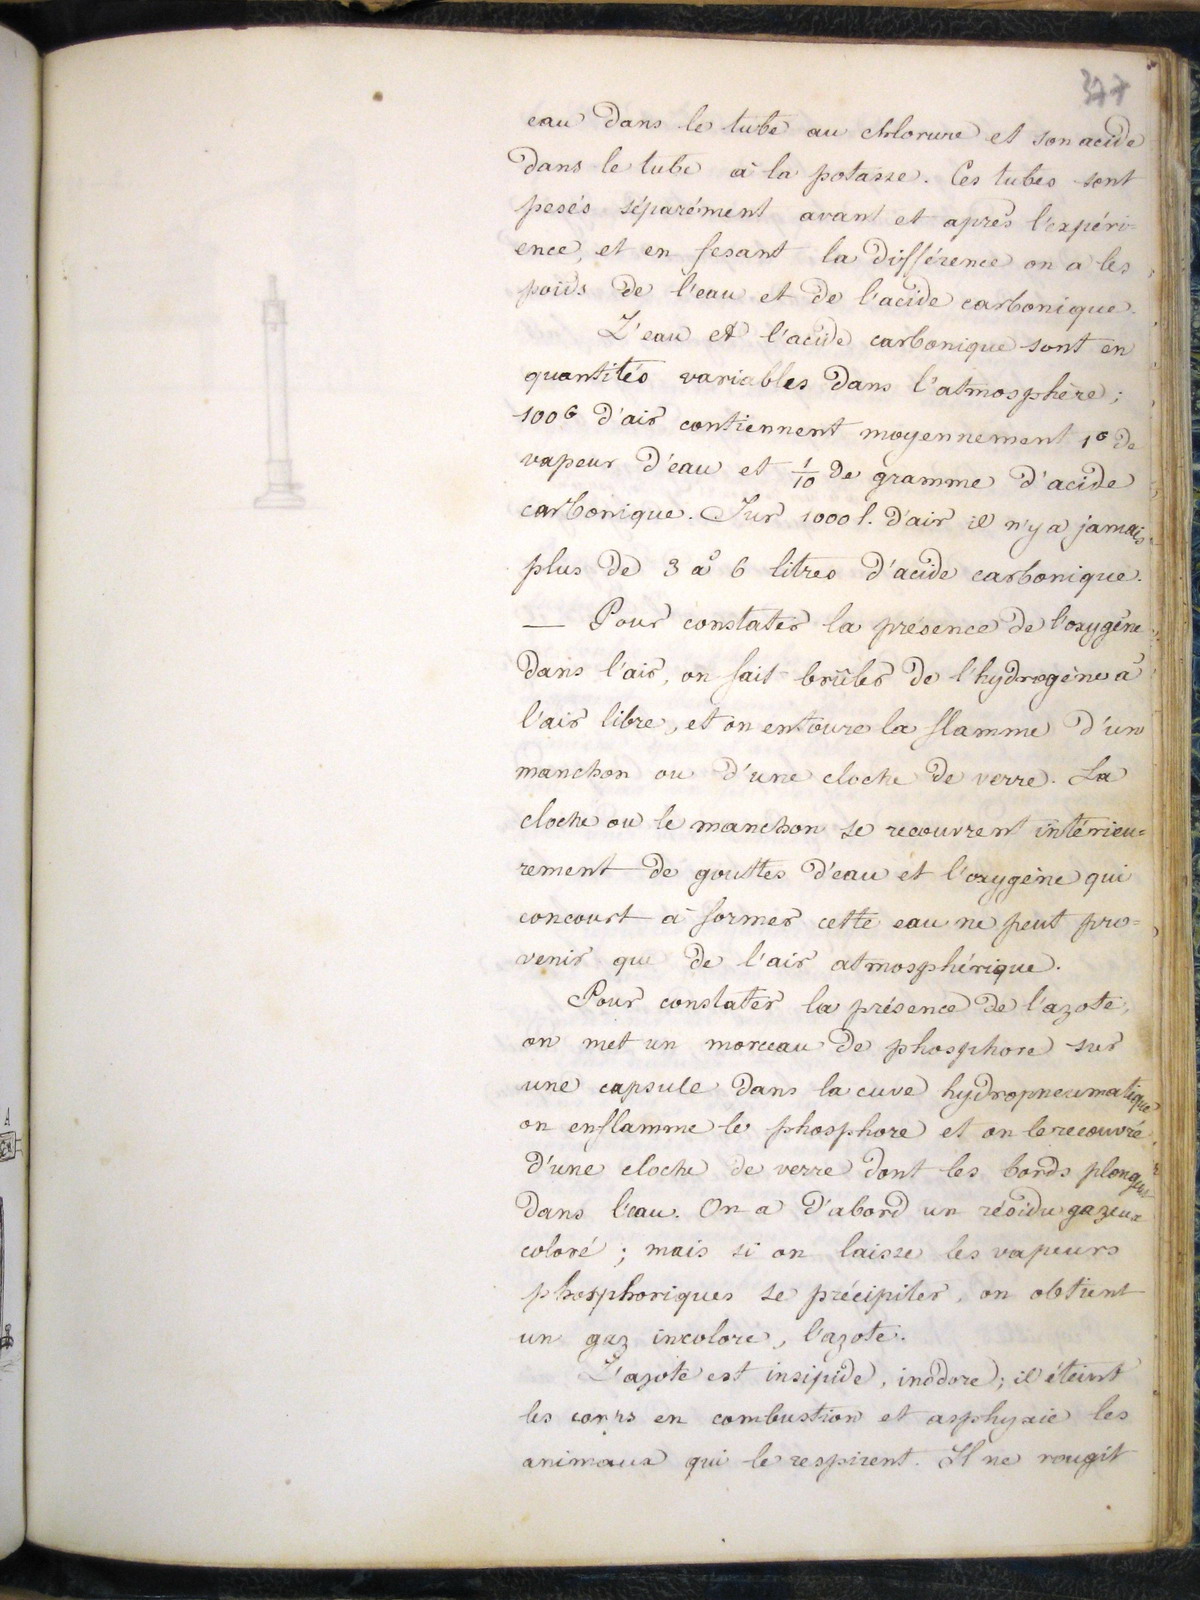 377
eau dans le tube au chlorure et son acide
dans le tube à la potasse. Ces tubes sont
pesés séparément avant et après l'expéri-
ence, et en fesant la différence on a les
poids de l'eau et de l'acide carbonique.
L'eau et l'acide carbonique sont en
quantités variables dans l'atmosphère ;
100G d'air contiennent moyennement 1G de
vapeur d'eau et 1/10 de gramme d'acide
carbonique. Sur 1000 l. d'air il n'y a jamais
plus de 3 à 6 litres d'acide carbonique.
— Pour constater la présence de l'oxygène
dans l'air, on fait brûler de l'hydrogène à
l'air libre, et on entoure la flamme d'un
manchon ou d'une cloche de verre. La
cloche ou le manchon se recouvrent intérieu=
rement de gouttes d'eau et l'oxygène qui
concourt à former cette eau ne peut pro=
venir que de l'air atmosphérique.
Pour constater la présence de l'azote,
on met un morceau de phosphore sur
une capsule dans la cuve hydropneumatique
on enflamme le phosphore et on le recouvre
d'une cloche de verre dont les bords plongent
dans l'eau. On a d'abord un résidu gazeux
coloré ; mais si on laisse les vapeurs
phosphoriques se précipiter, on obtient
un gaz incolore, l'azote.
L'azote est insipide, inodore ; il éteint
les corps en combustion et asphyxie les
animaux qui le respirent. Il ne rougit